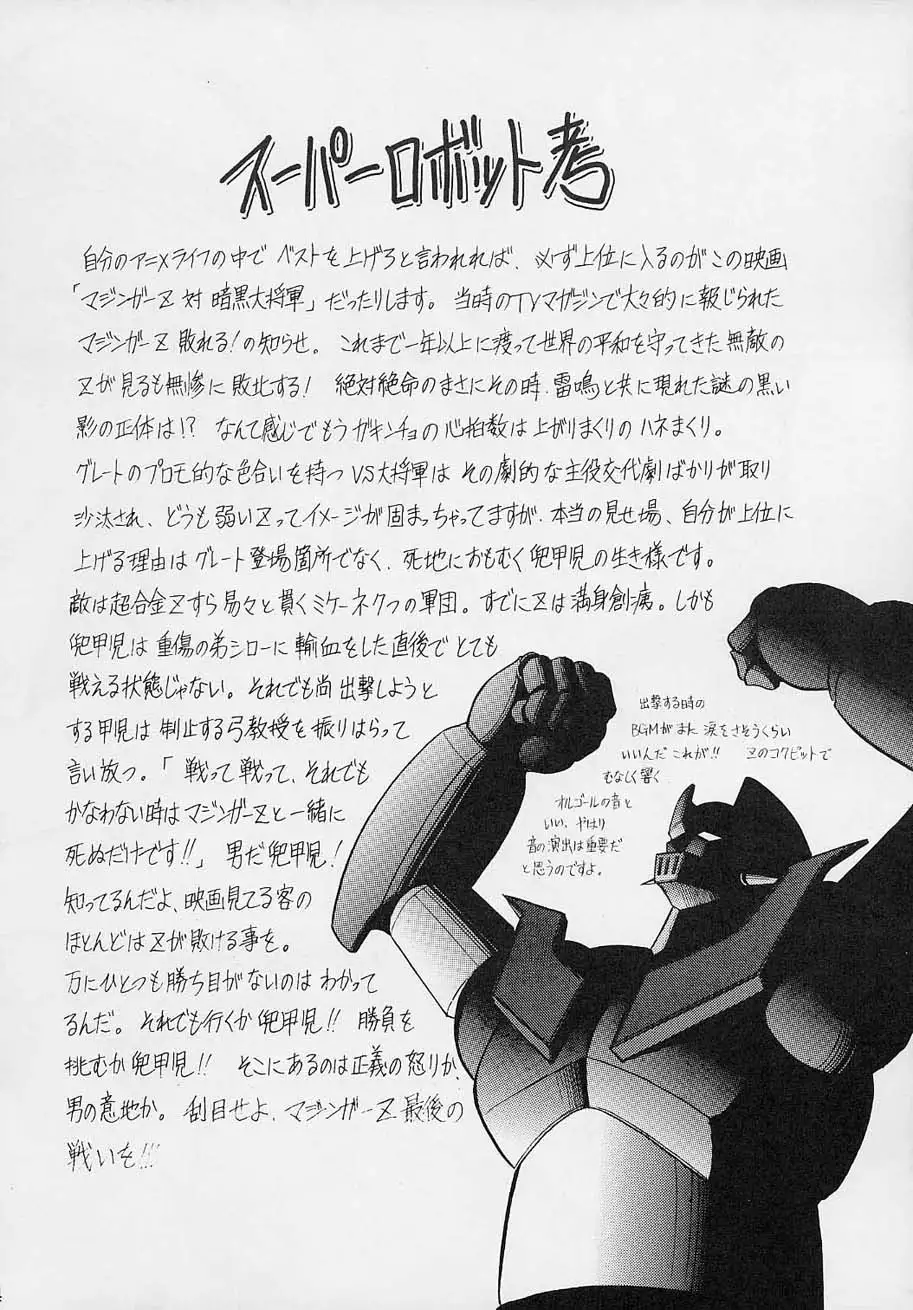 スーパーロボット考
自分のアニメライフの中で ベストを上げろと言われれば、必ず上位に入るのがこの映画
「マジンガーZ 対 暗黒大将軍」だったりします。 当時のTVマガジンで大々的に報じられた
マジンガーZ 敗れる!の知らせ。 これまで一年以上に渡って世界の平和を守ってきた無敵の
Zが見るも無惨に敗北する! 絶対絶命のまさにその時、雷鳴と共に現れた謎の黒い
影の正体は!? なんて感じでもうガキンチョの心拍数は上がりまくりのハネまくり。
グレートのプロモ的な色合いを持つ VS大将軍は その劇的な主役交代劇ばかりが取り
沙汰され、どうも弱いZってイメージが固まっちゃってますが、本当の見せ場、自分が上位に
上げる理由はグレート登場箇所でなく、死地におもむく兜甲児の生き様です。
敵は超合金Zすら易々と貫くミケーネ7つの軍団。すでにZは満身創痍。しかも
兜甲児は重傷の弟シローに輸血をした直後でとても
戦える状態じゃない。それでも尚 出撃しようと
する甲児は 制止する弓教授を振りはらって
言い放つ。「戦って戦って、それでも
かなわない時はマジンガーZと一緒に
死ぬだけです!!」男だ兜甲児!
知ってるんだよ、映画見てる客の
ほとんどはZが敗ける事を。
万にひとつも勝ち目がないのは わかって
るんだ。それでも行くか兜甲児!! 勝負を
挑むか兜甲児!! そこにあるのは正義の怒りか、
男の意地か。刮目せよ、マジンガーZ最後の
戦いを!!!
出撃する時の
BGMがまた 涙をさそうくらい
いいんだ これが!! Zのコクピットで
むなしく響く
オルゴールの音と
いい、やはり
音の演出は重要だ
と思うのですよ。